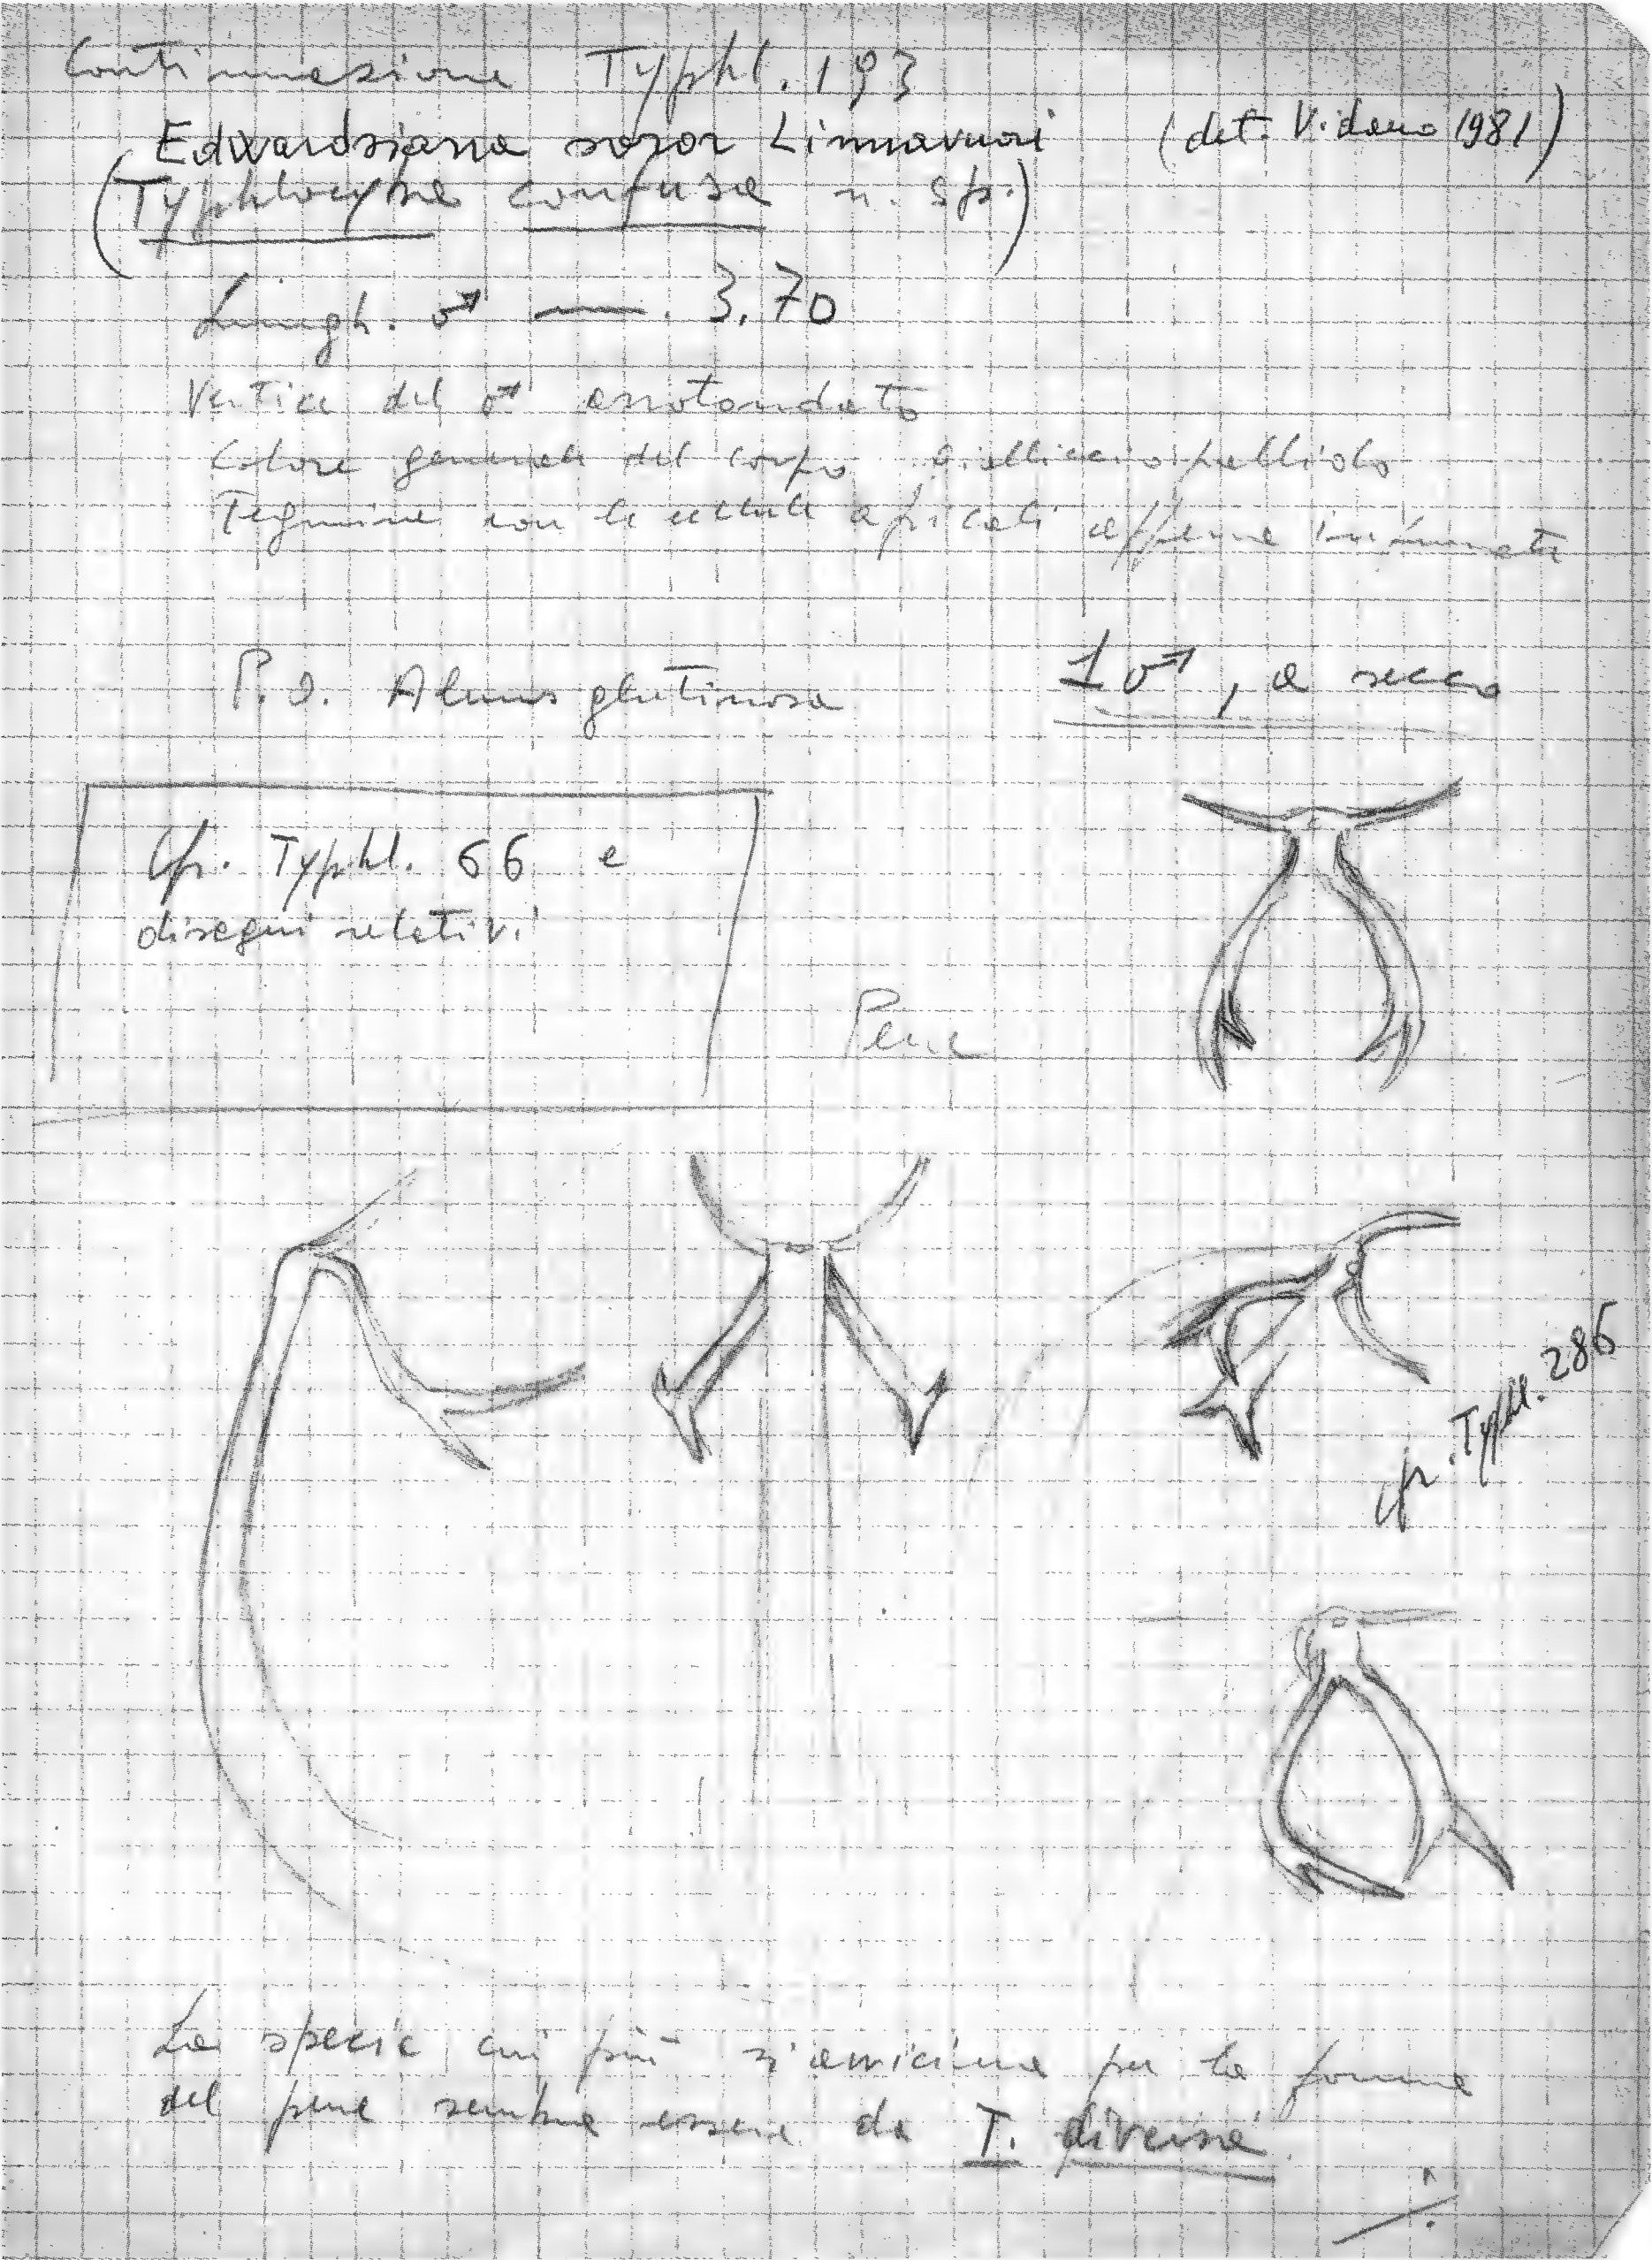 Continuazione Typhl. 193
Edwardsiana soror Linnavuori (det. Vidano 1981)
(Typhlocyba confusa n. sp.)
Lungh. ♂ —. 3,70
Vertice del ♂ arrotondato
Colore generale del corpo gialliccio pallido
Tegmine con le cellule apicali appena infumate
P. O. Alnus glutinosa
1 ♂, a secco
Cfr. Typhl. 66 e
disegni relativi
Pene
cfr. Typhl. 286
La specie cui più s'avvicina per la forma
del pene sembra essere da T. diversa